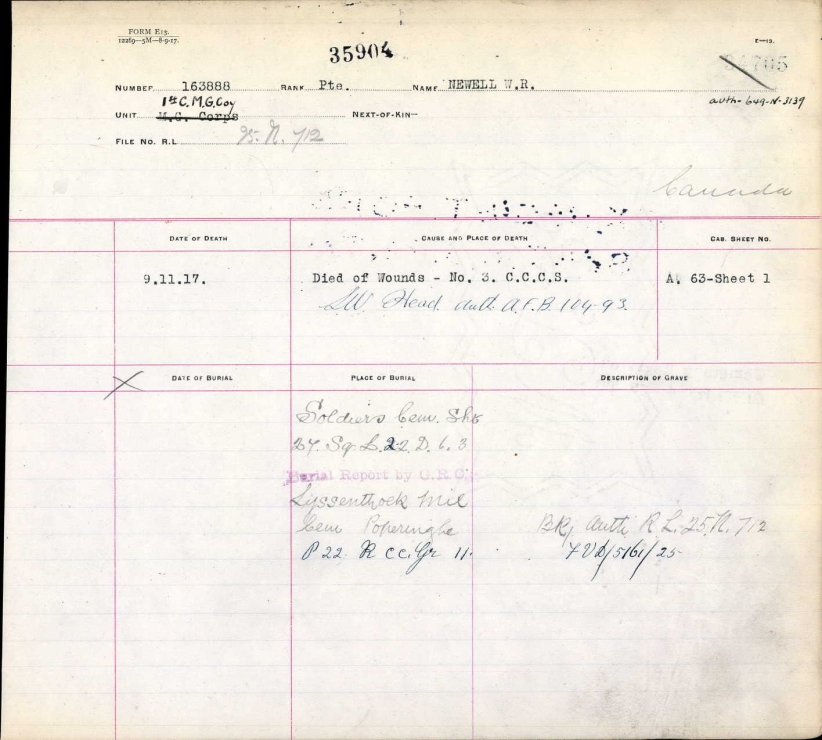 FORM E13.
12269—5M—8-9-17.
E—13.
35904
34705
NUMBER 163888 RANK Pte. NAME NEWELL W.R.
auth- 649-N-3139
1st C.M.G. Coy
UNIT M.G. Corps NEXT-OF-KIN—
FILE No. R.L. 25. N. 712
Canada
DATE OF DEATH CAUSE AND PLACE OF DEATH CAB. SHEET NO.
9.11.17. Died of Wounds - No. 3. C.C.C.S. A. 63-Sheet 1
Head. auth. A.F.B. 104-93.
DATE OF BURIAL PLACE OF BURIAL DESCRIPTION OF GRAVE
Soldiers Cem. Sht
27. Sq. L. 22. D. 6. 3
Burial Report by G.R.C.
Lyssenthoek Mil
Cem Poperinghe
P 22. R CC. Gr 11.
Auth R.L. 25. N. 712